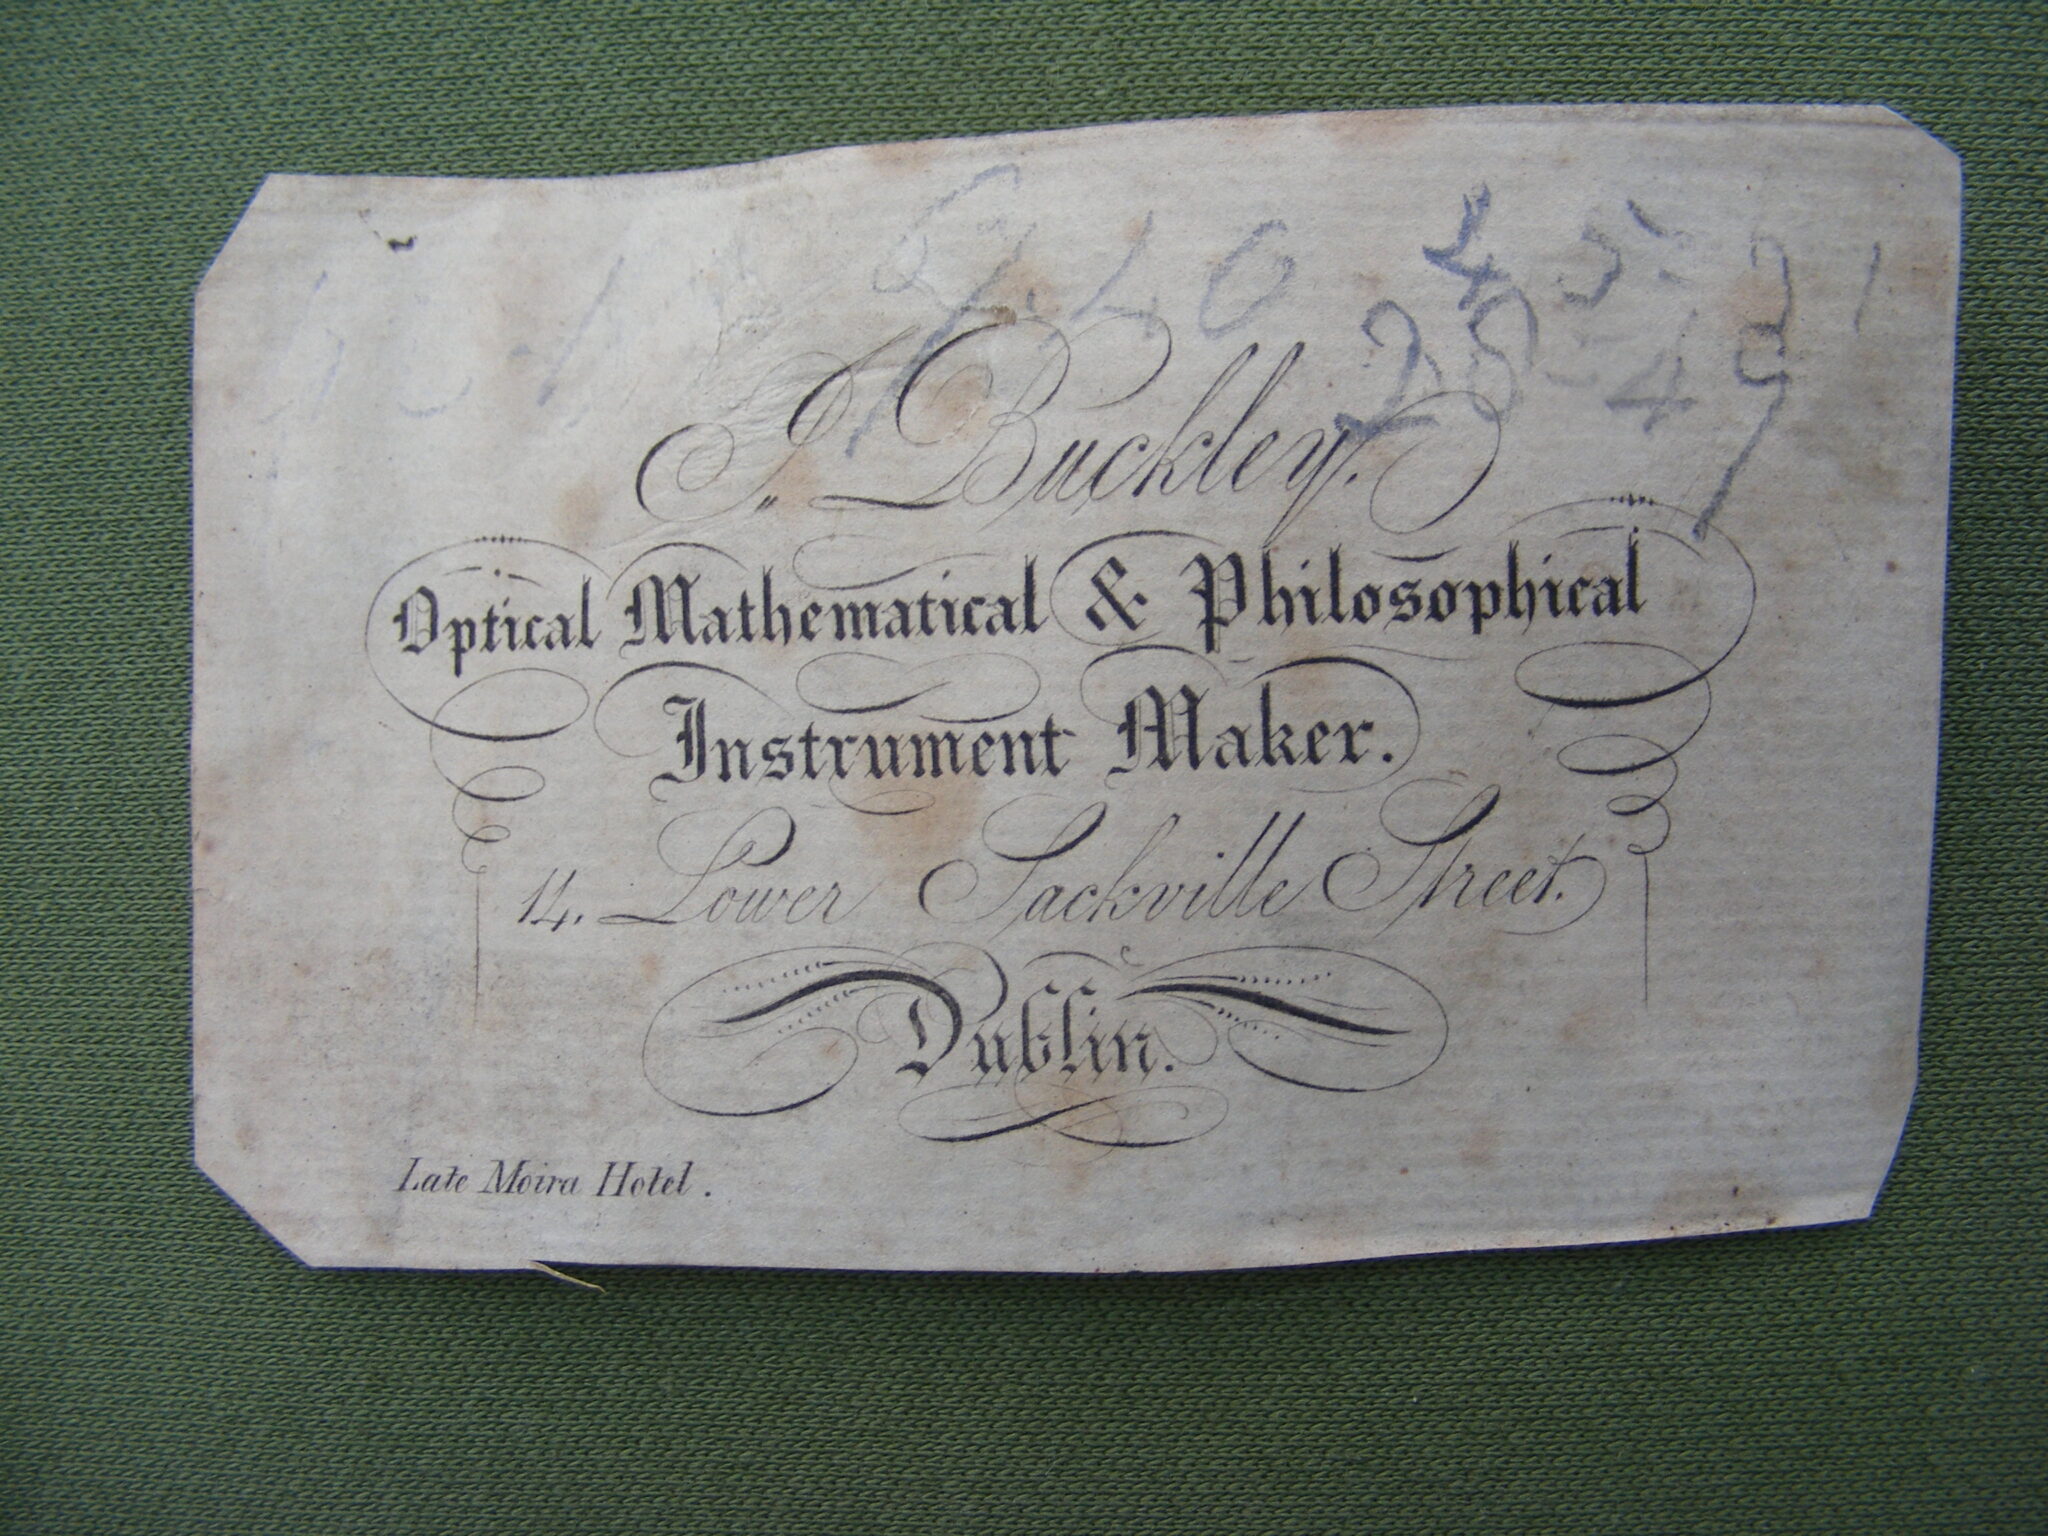 J. Buckley.
Optical Mathematical & Philosophical
Instrument Maker.
14. Lower Sackville Street.
Dublin.
Late Moira Hotel.